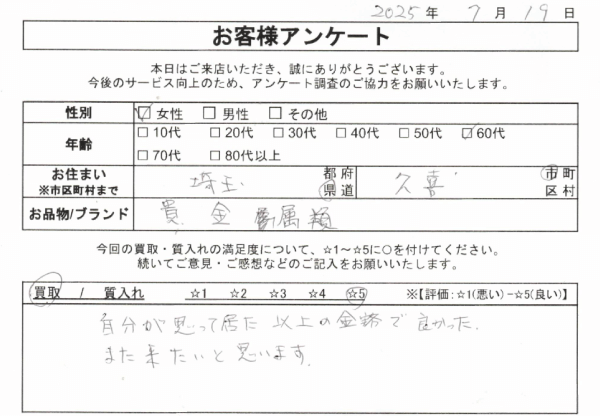 2025 年 7 月 19 日
お客様アンケート
本日はご来店いただき、誠にありがとうございます。
今後のサービス向上のため、アンケート調査のご協力をお願いいたします。
性別 ☑ 女性 □ 男性 □ その他
年齢 □ 10代 □ 20代 □ 30代 □ 40代 □ 50代 ☑ 60代
□ 70代 □ 80代以上
お住まい 埼玉 都 府 久喜 市 町
※市区町村まで 県 道 区 村
お品物/ブランド 貴金属類
今回の買取・質入れの満足度について、☆1～☆5に○を付けてください。
続いてご意見・ご感想などのご記入をお願いいたします。
買取 / 質入れ ☆1 ☆2 ☆3 ☆4 ☆5 ※【評価:☆1(悪い)−☆5(良い)】
自分が思って居た以上の金額で良かった.
また来たいと思います.